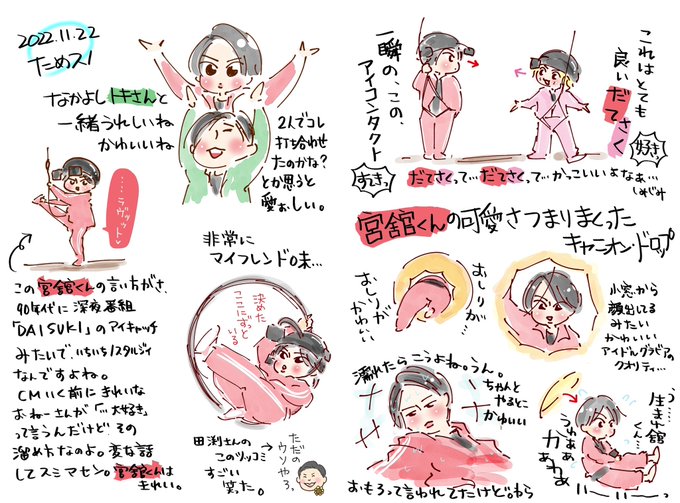 2022.11.22
ためスノ
なかよしトキさんと
一緒うれしいね
かわいいね
2人でコレ
打ち合わせ
たのかな?
とか思うと
愛おしい。
……ラヴィット
この宮舘くんの言い方がさ、
90年代に深夜番組
「DAISUKI」のアイキャッチ
みたいで、いちいちノスタルジィ
なんですよね。
CMいく前にきれいな
おねーさんが「…大好き」
って言うんだけどその
溜め方なのよ。変な話
してスミマセン。宮舘くんは
きれい。
非常に
マイフレンドの味…
決めた
ここにずっと
いる
田渕さんの
このツッコミ
すごい
笑た。
ただの
ウソやろ。
一瞬の、この、
アイコンタクト
これはとても
良いだてさく
好き
すきっ
だてさくって…だてさくって…かっこいいよなぁ…
しみじみ
宮舘くんの可愛さつまりまくった
キャニオンドロップ
おしりが…
おしりが
かわいい
小窓から
顔出してる
みたい
かわいい
アイドルグラビアの
クオリティ…
濡れたらこうよね。うん。
ちゃんと
やるとこ
かわいい
おもろって言われてたけどわら
生まれ舘
くん…
うわぁぁ
かぁわぁ
いい……